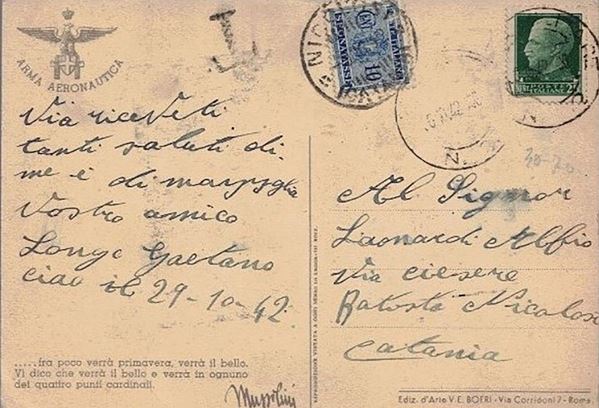 ARMA AERONAUTICA
T
Via riceveti
tanti saluti di
me e di
Vostro amico
Longo Gaetano
Ciao il 29-10-42
.....fra poco verrà primavera, verrà il bello.
Vi dico che verrà il bello e verrà in ognuno
dei quattro punti cardinali.
Mussolini
10
POSTE
ITALIANE
Al Signor
Leonardi Alfio
Via
Batosta Nicolosi
Catania
Ediz. d'Arte V. E. BOERI - Via Corridoni 7 - Roma